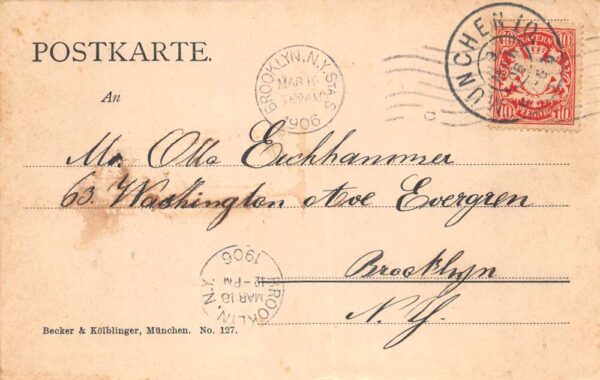 POSTKARTE.
An
BROOKLYN, N.Y. Sta. S
MAR 18
1906
MÜNCHEN
BAYERN
10 10
PFENNIG
Mr. Otto Eichhammer
63 Washington Ave Evergren
Brooklyn
N. Y.
BROOKLYN, N.Y.
MAR 18
12-PM
1906
Becker & Kölblinger, München. No. 127.